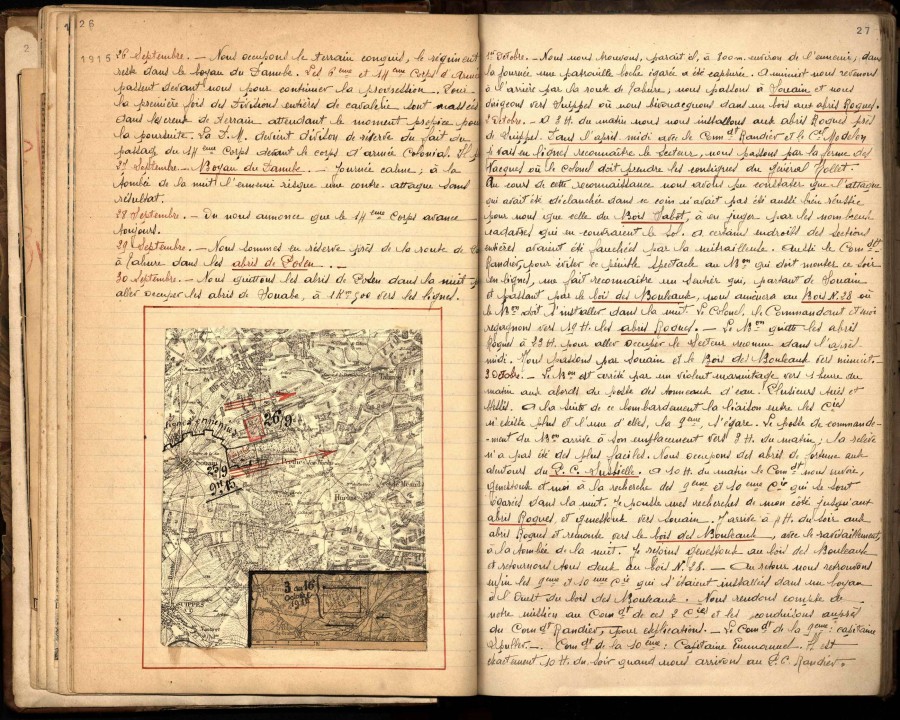 26
1915 26 Septembre. — Nous occupons le terrain conquis, le régiment
reste dans le boyau du Danube. Les 6ème et 14ème Corps d'Armée
passent devant nous pour continuer la progression. Pour
la première fois des Divisions entières de cavalerie sont massées
dans les creux de terrain attendant le moment propice pour
la poursuite. La D.M. devient division de réserve du fait du
passage du 14ème Corps devant le corps d'armée Colonial.
27 Septembre. — Boyau du Danube. — Journée calme ; à la
tombée de la nuit l'ennemi risque une contre attaque sans
résultat.
28 Septembre. — On nous annonce que le 14ème Corps avance
toujours.
29 Septembre. — Nous sommes en réserve près de la route de
à Tahure dans les abris de Posen. —
30 Septembre. — Nous quittons les abris de Posen dans la nuit
aller occuper les abris de Souabe, à 1 Km 500 vers les lignes.
26/9
25/9
9h15
Hurlus
SUIPPES
3 au 16
octobre
1915
27
1er Octobre. Nous nous trouvons, paraît-il, à 300m. environ de l'ennemi ; dans
la journée une patrouille boche égarée a été capturée. A minuit nous revenons
à l'arrière par la route de Tahure ; nous passons à Souain et nous
dirigeons vers Suippes où nous bivouacquons dans un bois aux abris Roques.
2 Octobre. — A 3 H. du matin nous nous installons aux abris Roques près
de Suippes. Dans l'après midi avec le Comdt Randier et le Cel Modelon
je vais en lignes reconnaître le secteur, nous passons par la ferme des
Wacques où le Colonel doit prendre les consignes du Général
Au cours de cette reconnaissance nous avons pu constater que l'attaque
qui avait été déclanchée dans ce coin n'avait pas été aussi bien réussie
pour nous que celle du Bois Sabot, à en juger par les nombreux
cadavres qui en couvraient le sol. A certains endroits des sections
entières avaient été fauchées par la mitrailleuse. Aussi le Comdt
Randier, pour éviter ce pénible spectacle au Bon qui doit monter ce soir
en lignes, me fait reconnaître un sentier qui, partant de Souain
et passant par le bois des Bouleaux, nous amènera au Bois N. 28 où
le Bon doit s'installer dans la nuit. Le Colonel, le Commandant et moi
regagnons vers 19 H. les abris Roques. — Le Bon quitte les abris
Roques à 22 H. pour aller occuper le secteur reconnu dans l'après
midi. Nous passons par Souain et le Bois des Bouleaux vers minuit.
3 Octobre. — Le Bon est arrêté par un violent marmitage vers 1 heure du
matin aux abords du poste des tonneaux d'eau. Plusieurs tués et
blessés. A la suite de ce bombardement la liaison entre les Cies
n'existe plus et l'une d'elles, la 9ème, s'égare. Le poste de commande-
-ment du Bon arrive à son emplacement vers 3 H. du matin ; la relève
n'a pas été des plus faciles. Nous occupons des abris de fortune aux
alentours du P.C. A 10 H. du matin le Comdt nous envoie,
Genestoux et moi à la recherche des 9ème et 10ème Cie qui se sont
égarées dans la nuit. Je pousse mes recherches de mon côté jusqu'aux
abris Roques, et Genestoux vers Souain. J'arrive à 4 H. du soir aux
abris Roques et remonte vers le bois des Bouleaux, avec le ravitaillement,
à la tombée de la nuit. Je rejoins Genestoux au bois des Bouleaux
et retournons tous deux au bois N. 28. — Au retour nous retrouvons
enfin les 9ème et 10ème Cie qui s'étaient installées dans un boyau
à l'Ouest du bois des Bouleaux. Nous rendons compte de
notre mission au Comdt de ces 2 Cies et les conduisons auprès
du Comdt Randier, pour explications. — Le Comdt de la 9ème : capitaine
— Comdt de la 10ème : Capitaine Emmanuel. Il est
exactement 10 H. du soir quand nous arrivons au P.C. Randier.